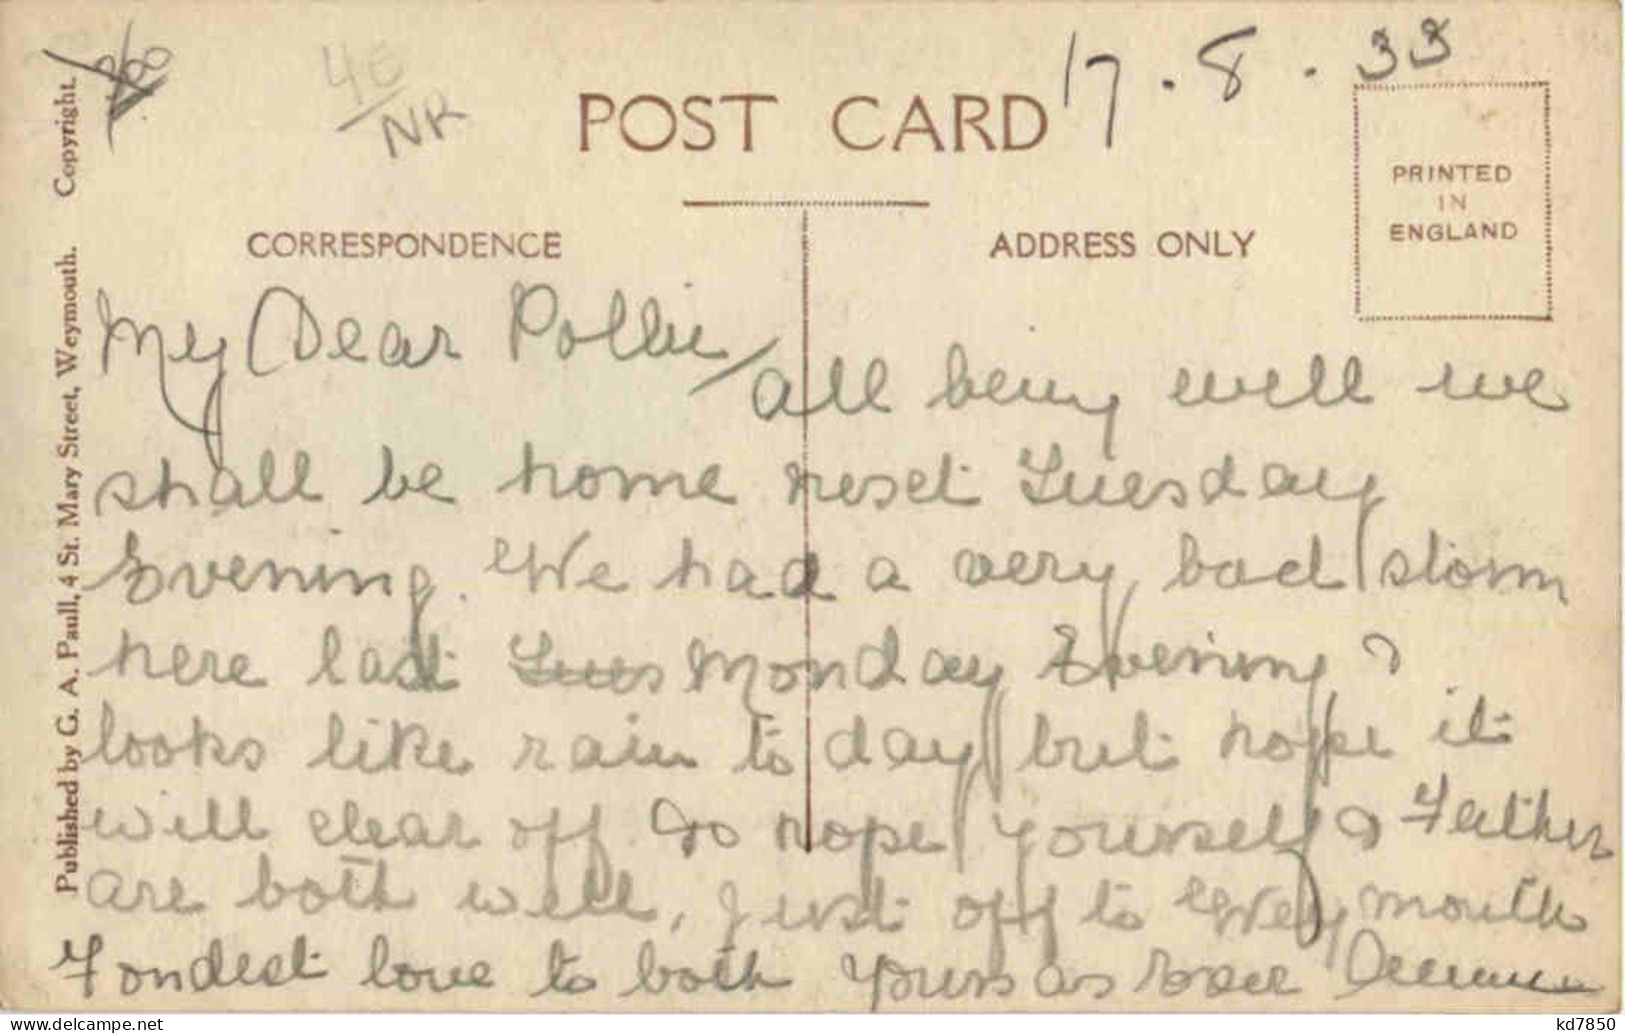 4E
NR
POST CARD
17.8.33
PRINTED
IN
ENGLAND
CORRESPONDENCE
ADDRESS ONLY
Published by G. A. Paull, 4 St. Mary Street, Weymouth. Copyright.
My Dear Pollie/
all being well we
shall be home next Tuesday
Evening. We had a very bad storm
here last Tues Monday Evening &
looks like rain to day but hope it
will clear off. Do hope yourself & Father
are both well, just off to Weymouth
Fondest love to both Yours as Ever
kd7850